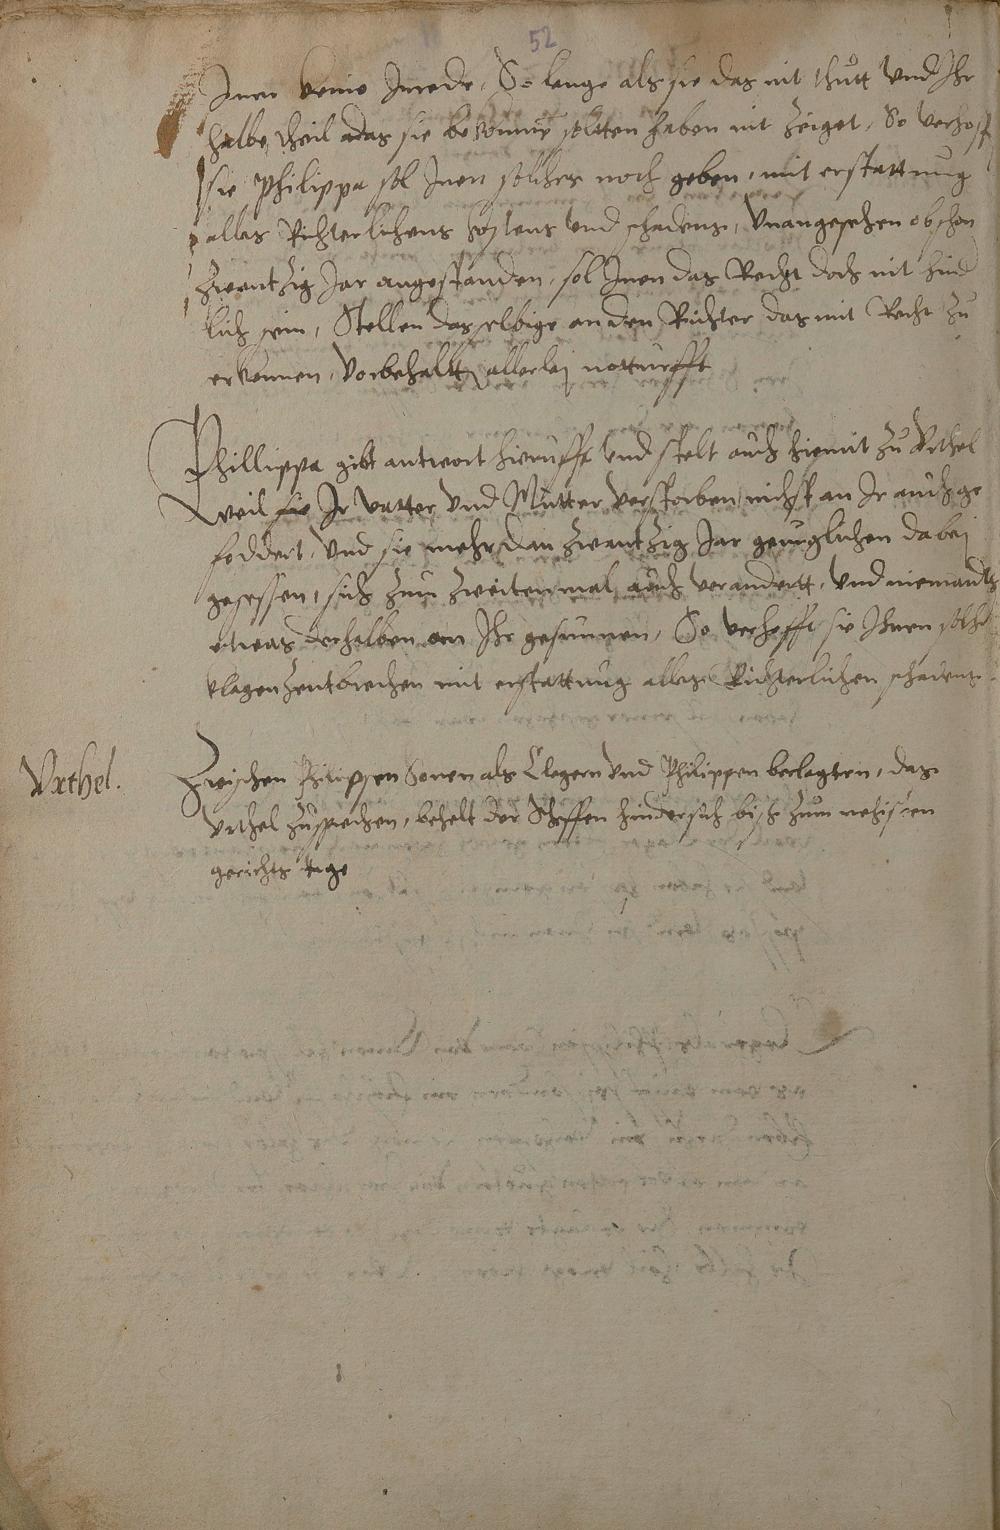 52
Inen keine Inrede, So lange als sie das nit thutt Und Ihr
halbe theil das sie bekomme soltten haben nit zeiget, So verhoff
sie Philippa sol Inen solches noch geben, mit erstattung
alles Richterlichens kostens und schadens, Unangesehen obschon
zwentzig Jar angestanden, sol Inen das Recht doch nit hind
lich sein, Stellen dasselbige an den Richter das mit Recht zu
erkennen, Vorbehaltt allerlei notturfft
Phillippa gibt antwort hieruff Und stelt auch hiemit zu Urthel
Weil sie Ir Vatter Und Mutter verstorben, nichst an Ir auch ge
foddert, Und sie mehr dan zwentzig Jar geruglichen dabei
gesessen, sich zum zweiten mal auch verandertt, Und niemandts
etwas derhalben an Ihr gesunnen, So verhofft sie Ihnen solche
klagen zentbrechen mit erstattung alles Richterlichen schadens
Urthel.
Zwischen Philipsen Sonen als Clegern Und Philippen beclagtin, das
Urthel zusprechen, behelt der Scheffen hindersich bis zum nehisten
gerichts tage